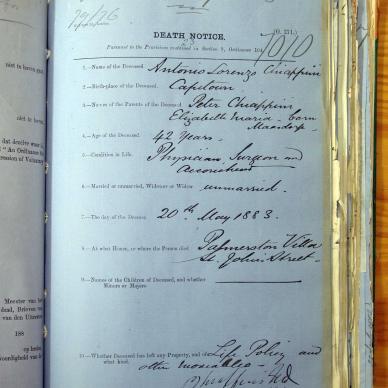 29/26
DEATH NOTICE.
[O. 231.]
Pursuant to the Provisions contained in Section 9, Ordinance 104
7010
1.—Name of the Deceased Antonio Lorenzo Chiappini
2.—Birth-place of the Deceased Capetown
3.—Names of the Parents of the Deceased Peter Chiappini
Elizabeth Maria born
4.—Age of the Deceased 42 Years.
5.—Condition in Life. Physician, Surgeon and
Accoucheur
6.—Married or unmarried, Widower or Widow unmarried.
7.—The day of the Decease 20th May 1883.
8.—At what House, or where the Person died Palmerston Villa
St. John's Street.
9.—Names of the Children of Deceased, and whether
Minors or Majors
10.—Whether Deceased has left any Property, and of what kind. Life Policy and
other moveables
niet te haven
niet te
dat dezelve
" An Ordinance
Meester van het
dead, Brieven van
van den Uitersten
188
op heden